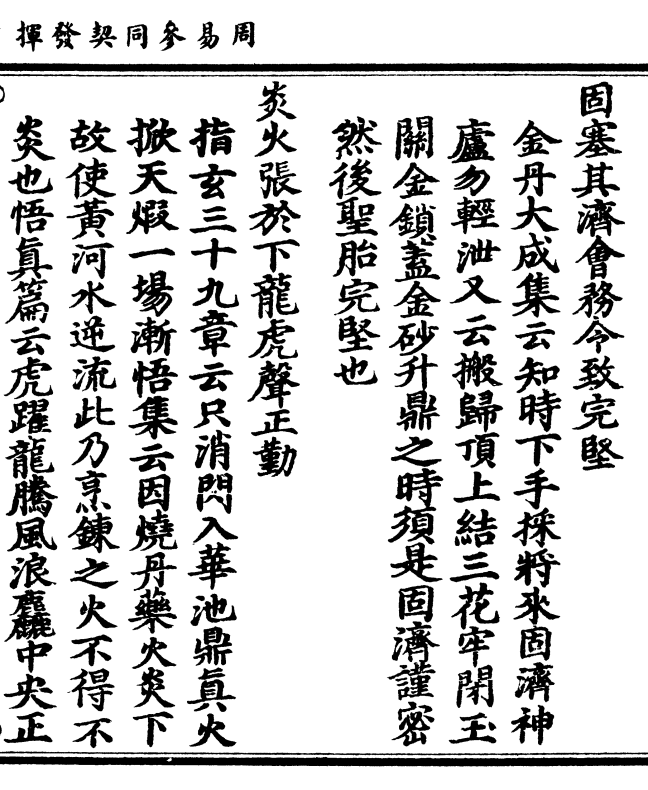 周易參同契發揮
固塞其濟會務令致完堅
金丹大成集云知時下手採將來固濟神
廬勿輕泄又云搬歸頂上結三花牢閉玉
關金鎖蓋金砂升鼎之時須是固濟謹密
然後聖胎完堅也
炎火張於下龍虎聲正勤
指玄三十九章云只消閃入華池鼎真火
掀天煆一場漸悟集云因燒丹藥火炎下
故使黃河水逆流此乃烹鍊之火不得不
炎也悟真篇云虎躍龍騰風浪麤中央正